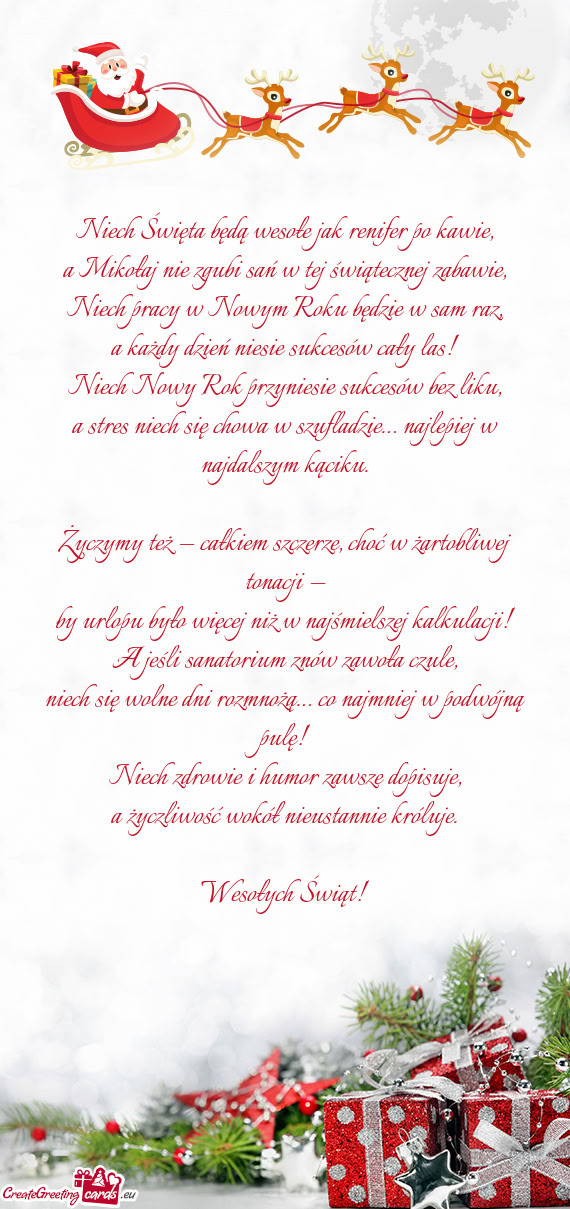 Niech Święta będą wesołe jak renifer po kawie,
a Mikołaj nie zgubi sań w tej świątecznej zabawie,
Niech pracy w Nowym Roku będzie w sam raz,
a każdy dzień niesie sukcesów cały las!
Niech Nowy Rok przyniesie sukcesów bez liku,
a stres niech się chowa w szufladzie... najlepiej w
najdalszym kąciku.
Życzymy też – całkiem szczerze, choć w żartobliwej
tonacji –
by urlopu było więcej niż w najśmielszej kalkulacji!
A jeśli sanatorium znów zawoła czule,
niech się wolne dni rozmnożą... co najmniej w podwójną
pulę!
Niech zdrowie i humor zawsze dopisuje,
a życzliwość wokół nieustannie króluje.
Wesołych Świąt!
CreateGreeting cards .eu